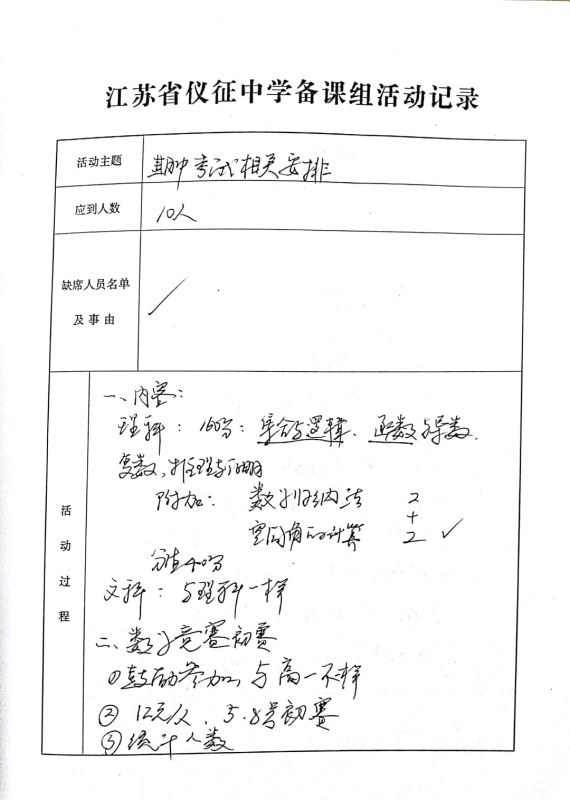 江苏省仪征中学备课组活动记录
活动主题
期中考试相关安排
应到人数
10人
缺席人员名单
及事由
活动过程
一、内容:
理科: 160分: 集合与逻辑、函数与导数、
复数、推理与证明
附加: 数学归纳法 2
+
空间角的计算 2 ✓
分值40分
文科: 与理科一样
二、数学竞赛初赛
①鼓励参加, 与高一不一样
② 12元/人、5.8号初赛
③ 统计人数